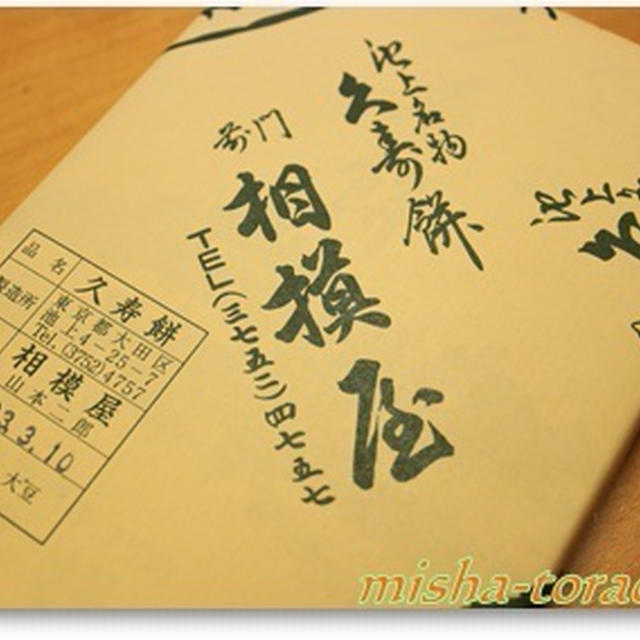 池上名物
久寿餅
前門
相模屋
TEL(三七五二)四七五七
池上
品名
久寿餅
製造所
東京都大田区
池上4-25-7
Tel.(3752)4757
相模屋
山本二郎
3.3.10
大豆
misha-torac